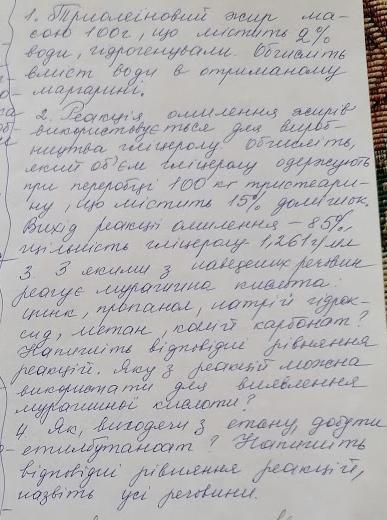 1. Триолеїновий жир ма-
сою 100г, що містить 2%
води, гідрогенували. Обчисліть
вміст води в отриманому
маргарині.
2. Реакція омилення жирів
використовується для вироб-
ництва гліцеролу. Обчисліть,
який об'єм гліцеролу одержують
при переробці 100 кг тристеари-
ну, що містить 15% домішок.
Вихід реакції омилення - 85%,
щільність гліцеролу 1,261 г/мл
3 З якими з наведених речовин
реагує мурашина кислота:
цинк, пропанол, натрій гідрок-
сид, метан, калій карбонат?
Напишіть відповідні рівняння
реакцій. Яку з реакцій можна
використати для виявлення
мурашиної кислоти?
4. Як, виходячи з етану, добути
етилбутаноат? Напишіть
відповідні рівняння реакцій,
назвіть усі речовини.